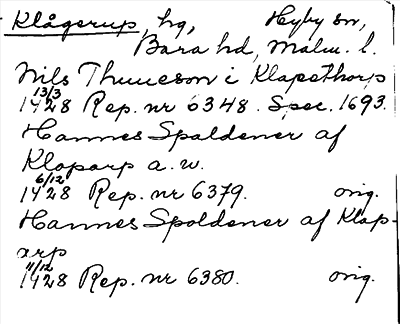 Klågerup, hg, Hyby sn,
Bara hd, Malm. l.
Nils Thuueson i Klapethorp
13/3
1428 Rep. nr 6348. Spec. 1693.
Hannes Spaldener af
Klaparp a. w.
6/12
1428 Rep. nr 6379. orig.
Hannes Spoldener af Klap-
arp
11/12
1428 Rep. nr 6380. orig.